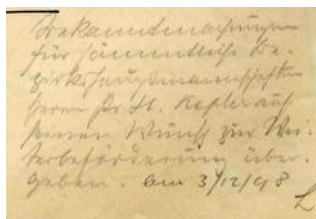 Bekanntmachungen
für sämmtliche Be-
zirkshauptmannschaften
Herrn Dr St. Kekule auf
seinen Wunsch zur Wei-
terbeförderung über-
geben. am 3/12/98
L